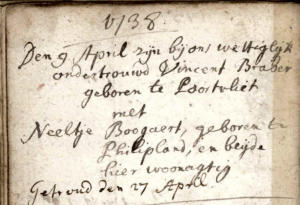 1738.
Den 9 April zijn bij ons wettiglijk
ondertrouwd Vincent Braber
geboren te Poortvliet
met
Neeltje Boogaert, geboren te
Philipland, en beijde
hier woonagtig
Getroud den 27 April